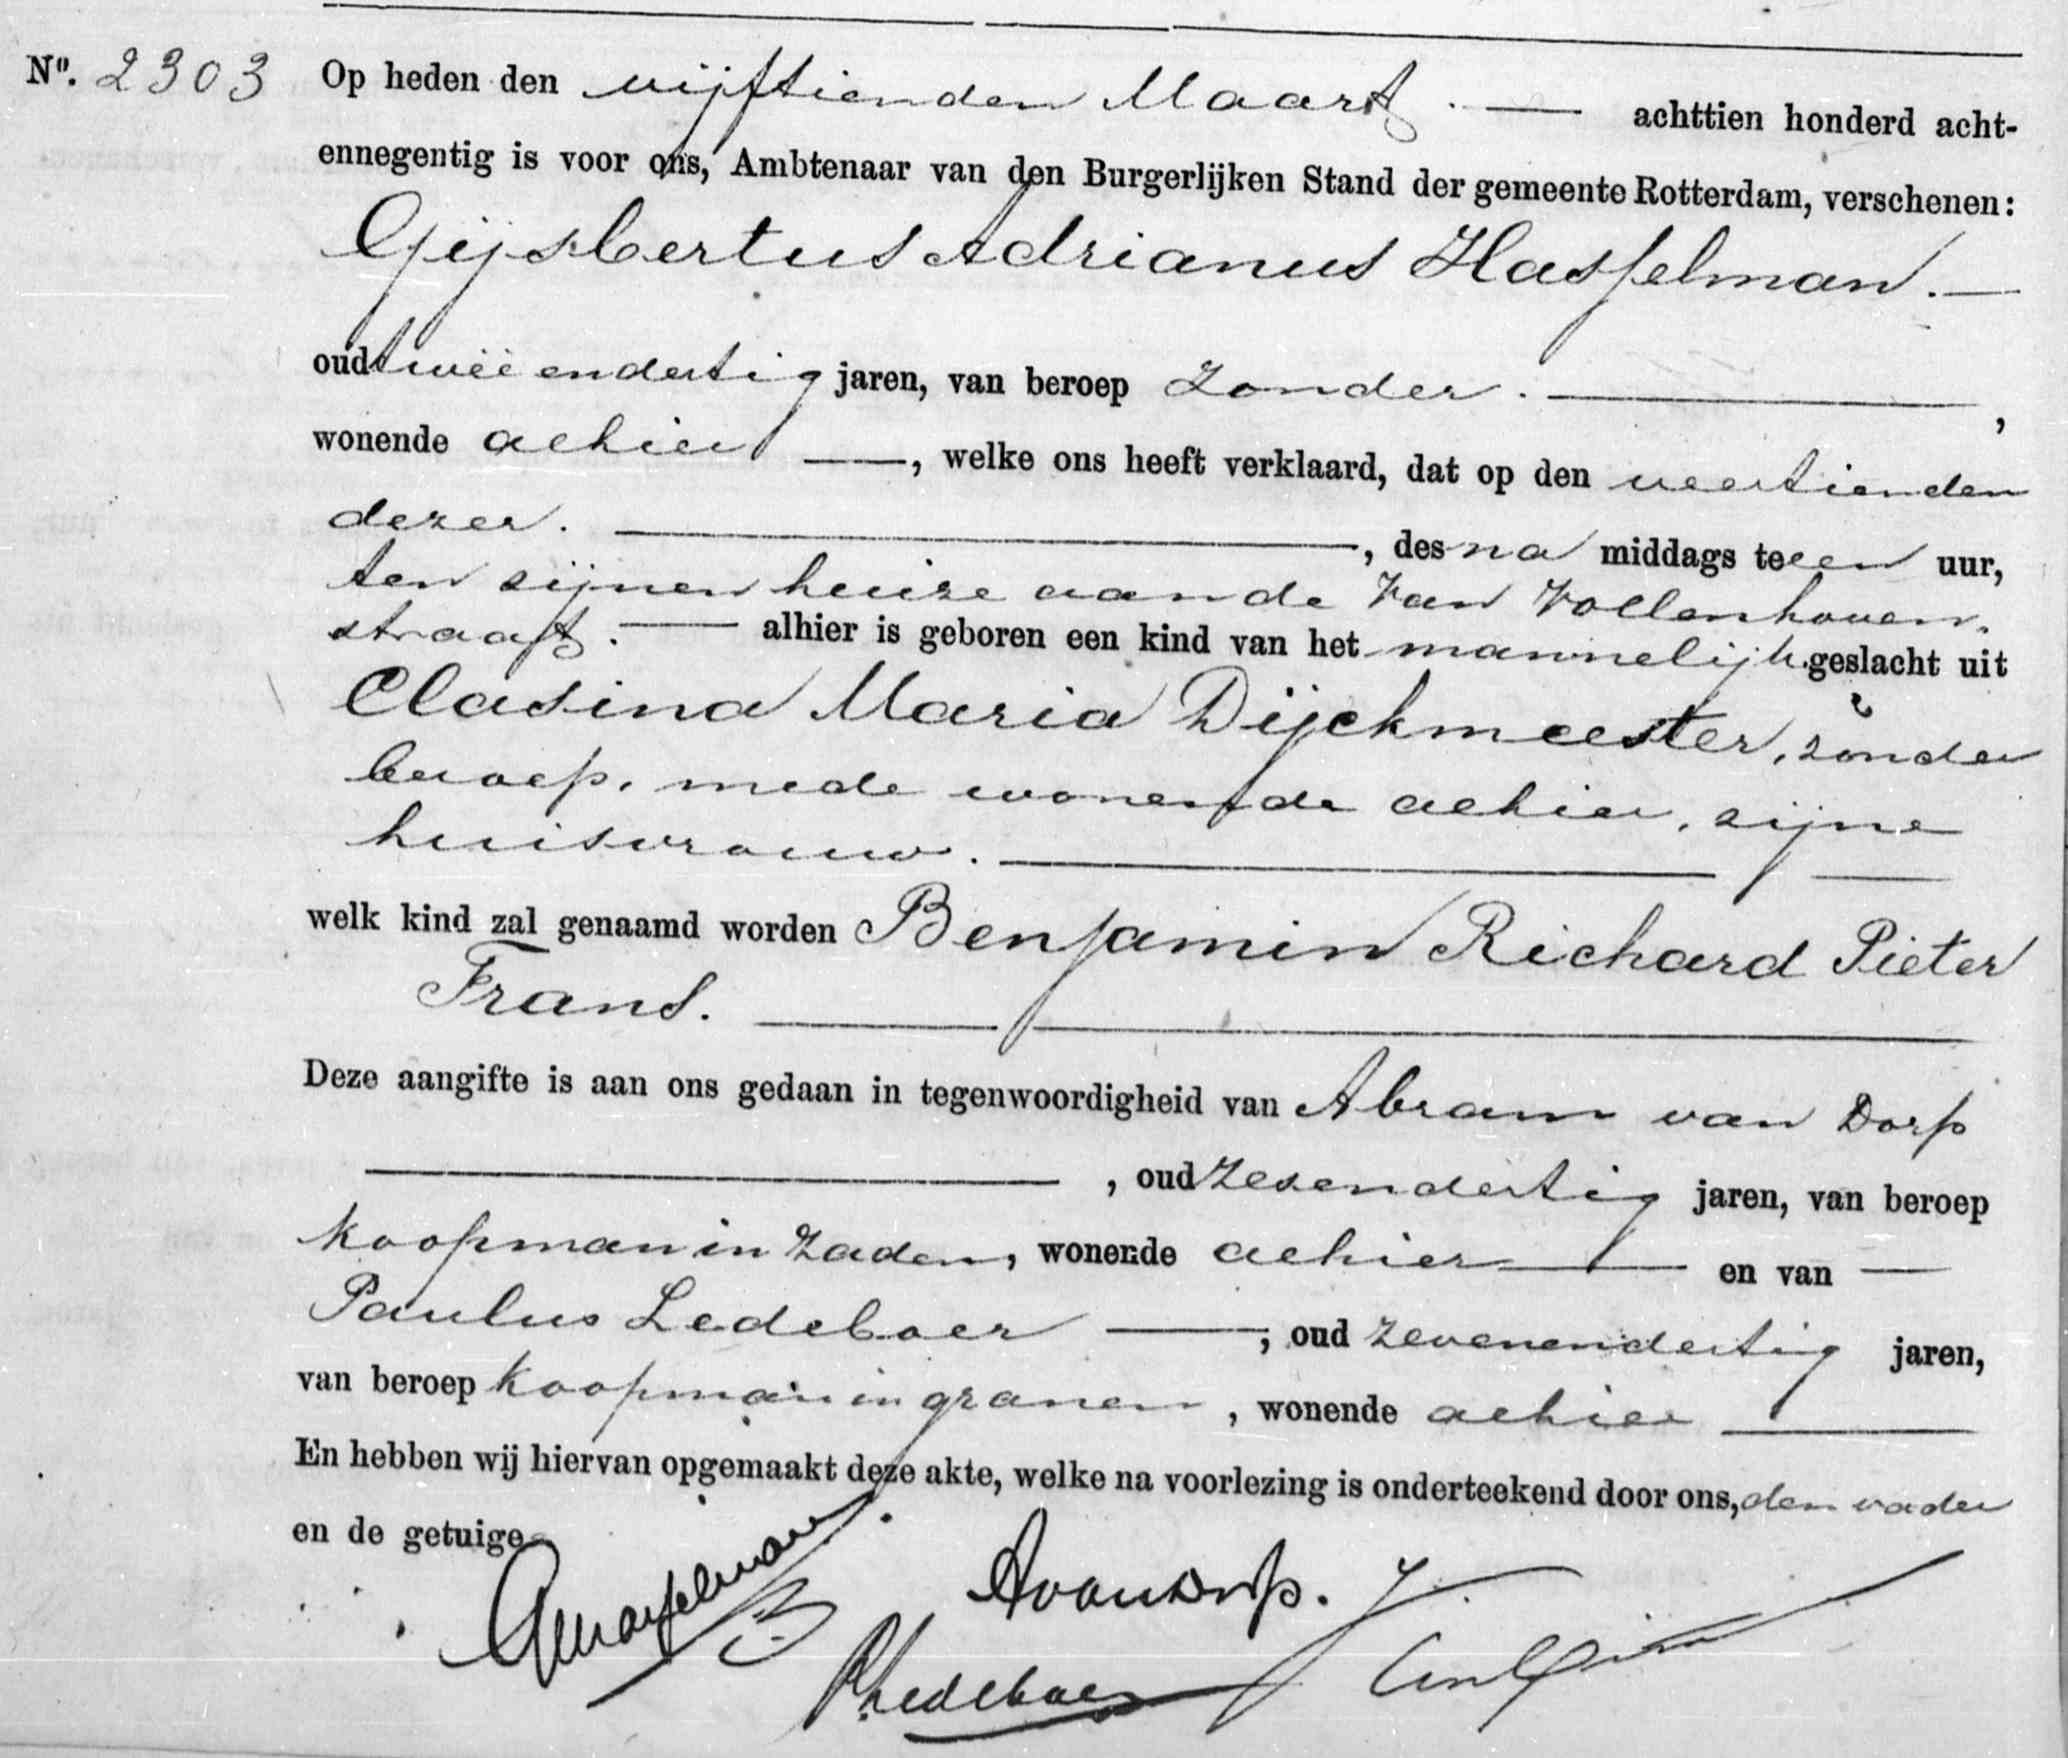 No. 2303 Op heden den vijftienden Maart . — achttien honderd acht-
ennegentig is voor ons, Ambtenaar van den Burgerlijken Stand der gemeente Rotterdam, verschenen:
Gijsbertus Adrianus Hasselman. —
oud tweeëndertig jaren, van beroep zonder. — ,
wonende alhier —, welke ons heeft verklaard, dat op den veertienden
dezer. —, des na middags te een uur,
ten zijnen huize aan de Van Vollenhoven-
straat. — alhier is geboren een kind van het mannelijk geslacht uit
Clasina Maria Dijckmeester, zonder
beroep, mede wonende alhier, zijne
huisvrouw. —
welk kind zal genaamd worden Benjamin Richard Pieter
Frans. —
Deze aangifte is aan ons gedaan in tegenwoordigheid van Abram van Dorp
— , oud zesendertig jaren, van beroep
koopman in zaden, wonende alhier — en van —
Paulus Ledeboer —, oud zevenendertig jaren,
van beroep koopman in granen, wonende alhier —
En hebben wij hiervan opgemaakt deze akte, welke na voorlezing is onderteekend door ons, den vader
en de getuigen.
GAHasselman
AvanDorp.
PLedeboer